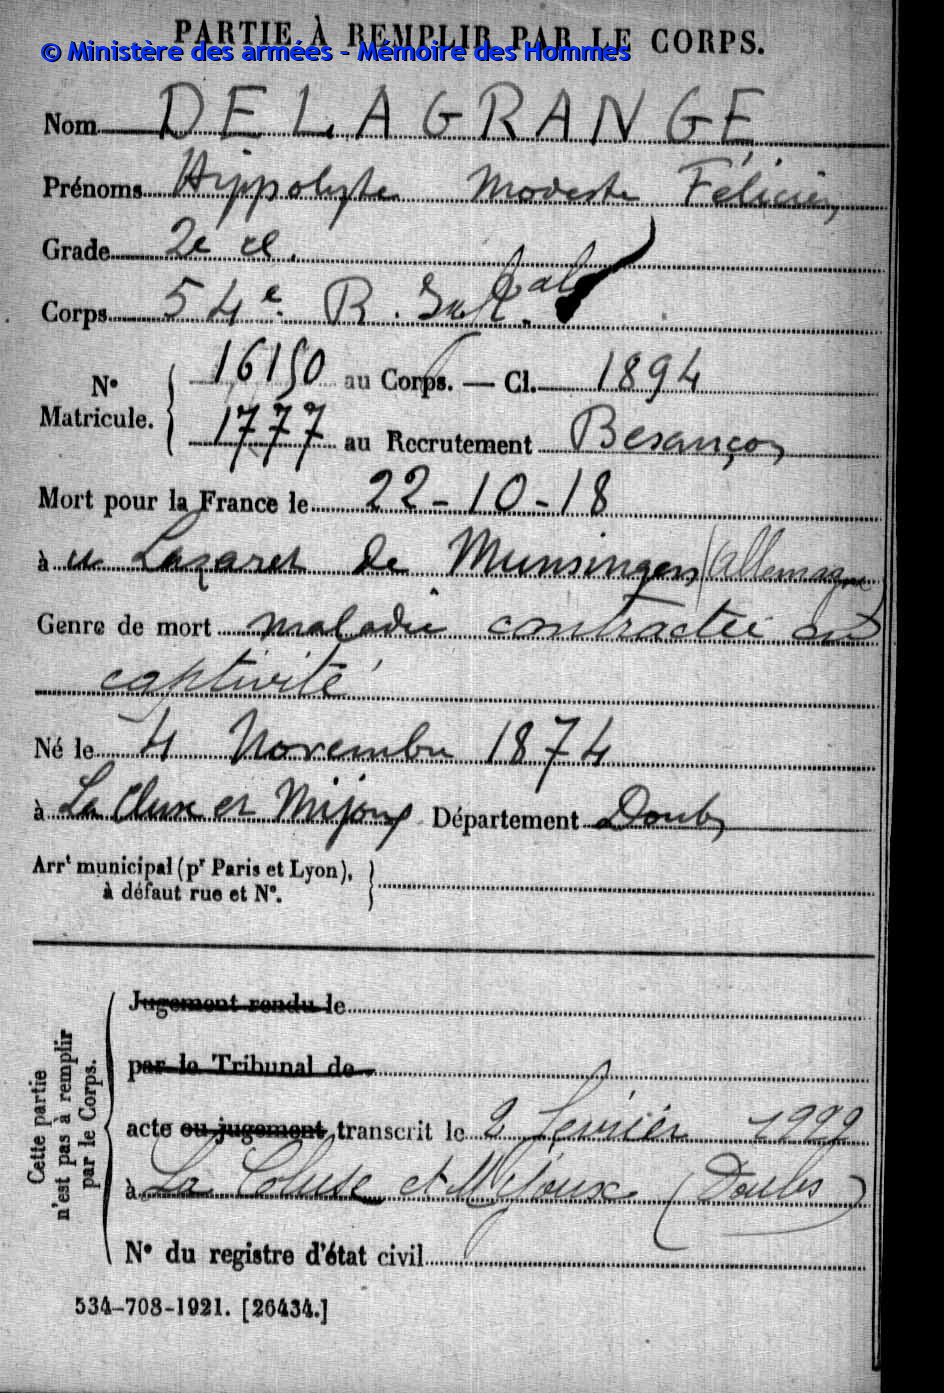 PARTIE À REMPLIR PAR LE CORPS.
© Ministère des armées - Mémoire des Hommes
Nom DELAGRANGE
Prénoms Hippolyte Modeste Félicien
Grade 2e cl.
Corps 54e R. Inf. cal
Nº Matricule. 16150 au Corps. — Cl. 1894
1777 au Recrutement Besançon
Mort pour la France le 22-10-18
à u Lazaret de Munsingen (Allemagne)
Genre de mort maladie contractée en
captivité
Né le 4 Novembre 1874
à La Cluse et Mijoux Département Doubs
Arrt municipal (pr Paris et Lyon),
à défaut rue et Nº.
Cette partie n'est pas à remplir par le Corps.
Jugement rendu le
par le Tribunal de
acte ou jugement transcrit le 2 février 1922
à La Cluse et Mijoux (Doubs)
Nº du registre d'état civil
534-708-1921. [26434.]